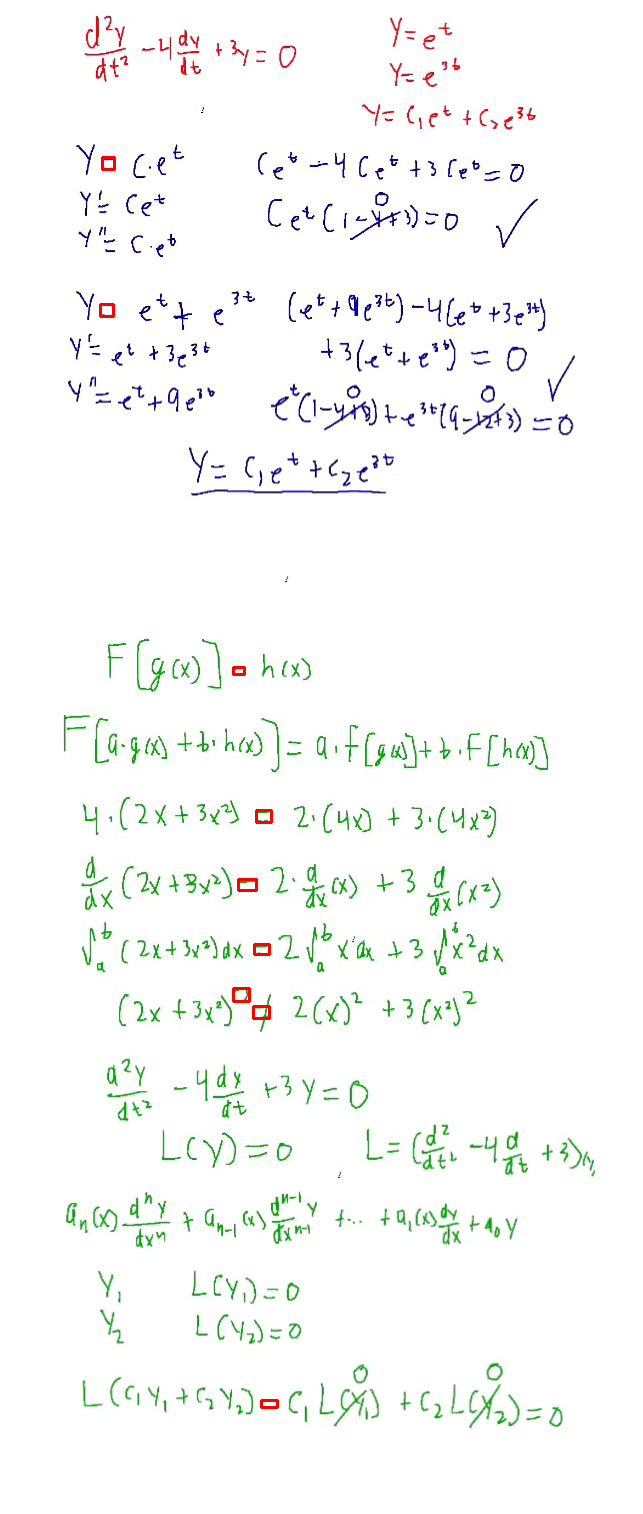 d²y/dt² - 4 dy/dt + 3y = 0
y = e^t
y = e^3t
y = c₁e^t + c₂e^3t
y = c·e^t
y' = ce^t
y'' = c·e^t
ce^t - 4ce^t + 3ce^t = 0
ce^t (1-4+3) = 0 ✓
0
y = e^t + e^3t
y' = e^t + 3e^3t
y'' = e^t + 9e^3t
(e^t + 9e^3t) - 4(e^t + 3e^3t)
+3(e^t + e^3t) = 0 ✓
0 0
e^t(1-4+3) + e^3t(9-12+3) = 0
y = c₁e^t + c₂e^3t
F[g(x)] = h(x)
F[a·g(x) + b·h(x)] = a·F[g(x)] + b·F[h(x)]
4·(2x + 3x²) = 2·(4x) + 3·(4x²)
d/dx (2x + 3x²) = 2·d/dx (x) + 3 d/dx (x²)
∫_a^b (2x + 3x²)dx = 2∫_a^b x dx + 3∫_a^b x² dx
(2x + 3x²)² ≠ 2(x)² + 3(x²)²
d²y/dt² - 4 dy/dt + 3y = 0
L(y) = 0 L = (d²/dt² - 4 d/dt + 3)y
aₙ(x) dⁿy/dxⁿ + aₙ₋₁(x) dⁿ⁻¹y/dxⁿ⁻¹ + ... + a₁(x) dy/dx + a₀y
y₁ L(y₁) = 0
y₂ L(y₂) = 0
0 0
L(c₁y₁ + c₂y₂) = c₁L(y₁) + c₂L(y₂) = 0